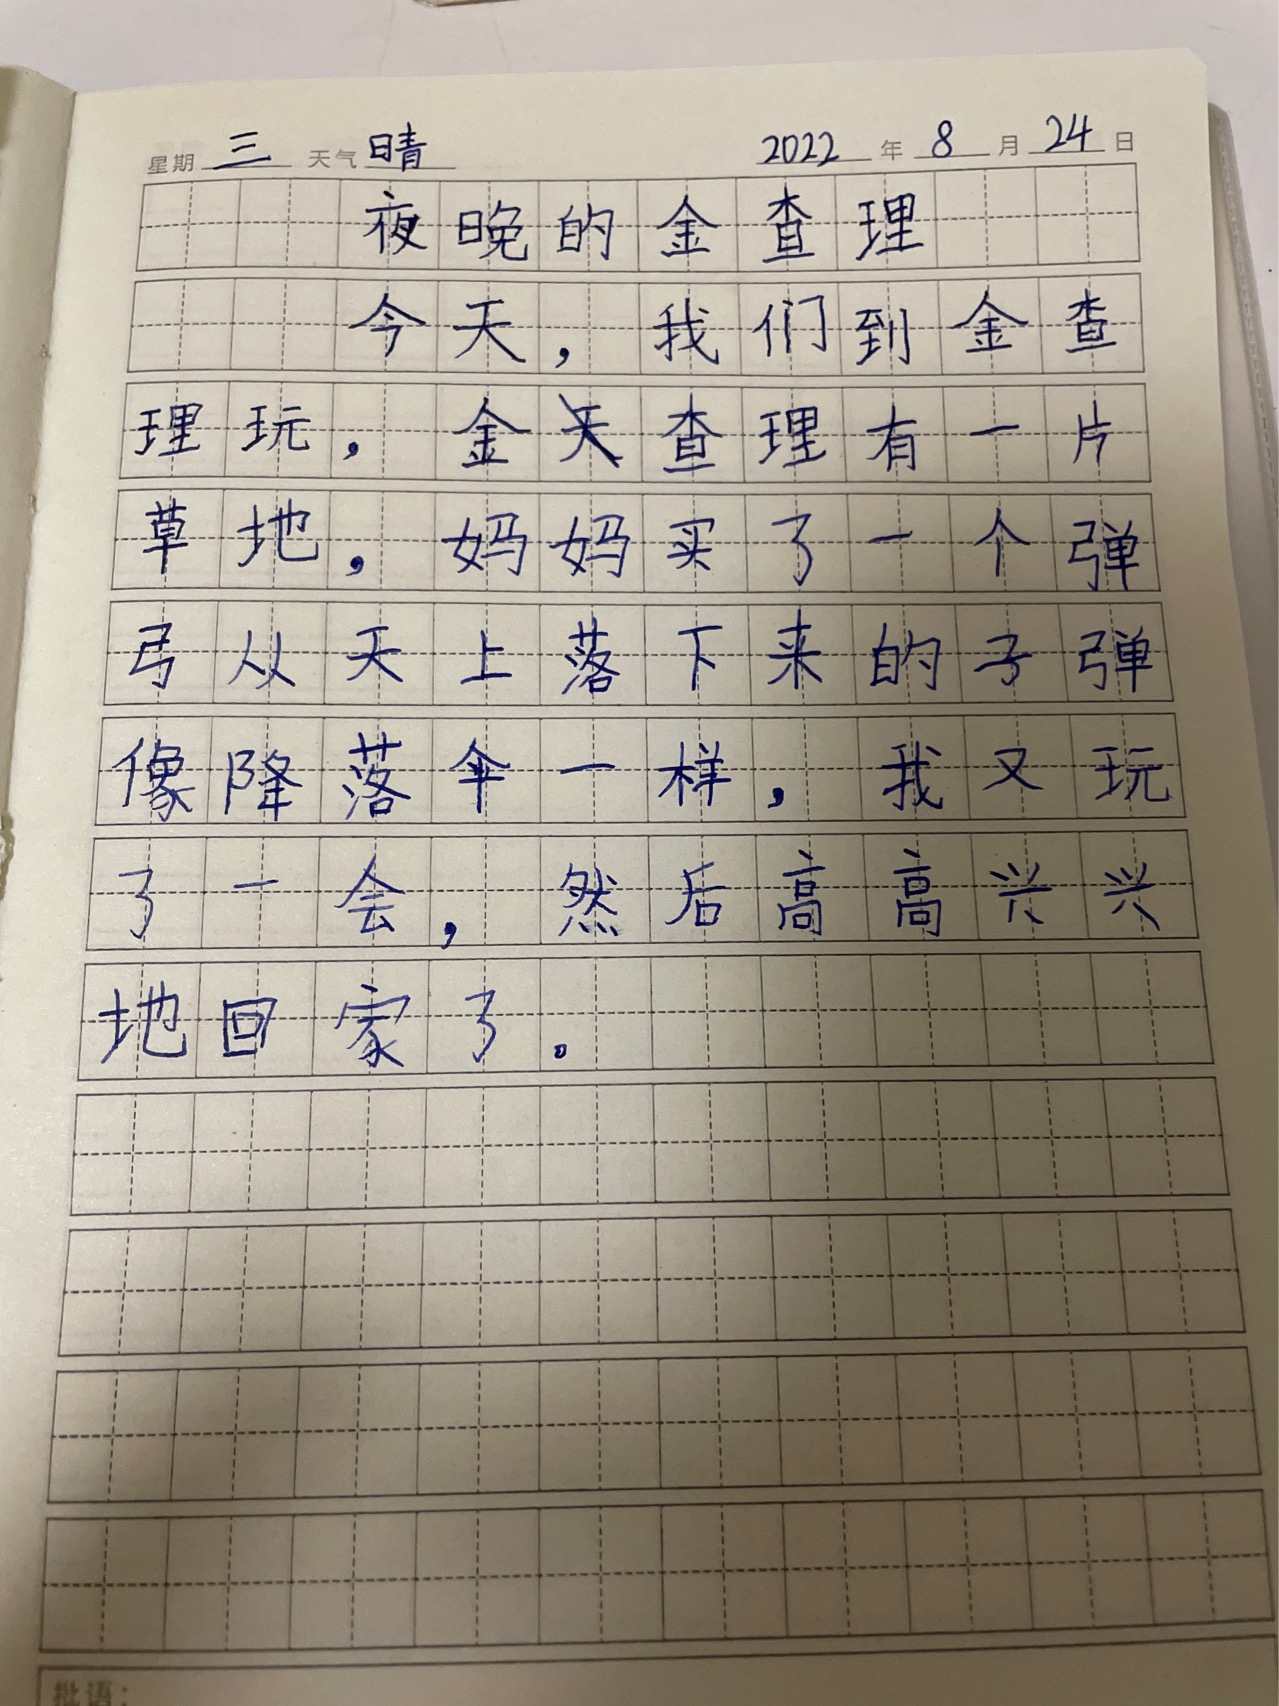 星期 三 天气 晴 2022 年 8 月 24 日
夜晚的金查理
今天，我们到金查
理玩，金查理有一片
草地，妈妈买了一个弹
弓从天上落下来的子弹
像降落伞一样，我又玩
了一会，然后高高兴兴
地回家了。
批语：